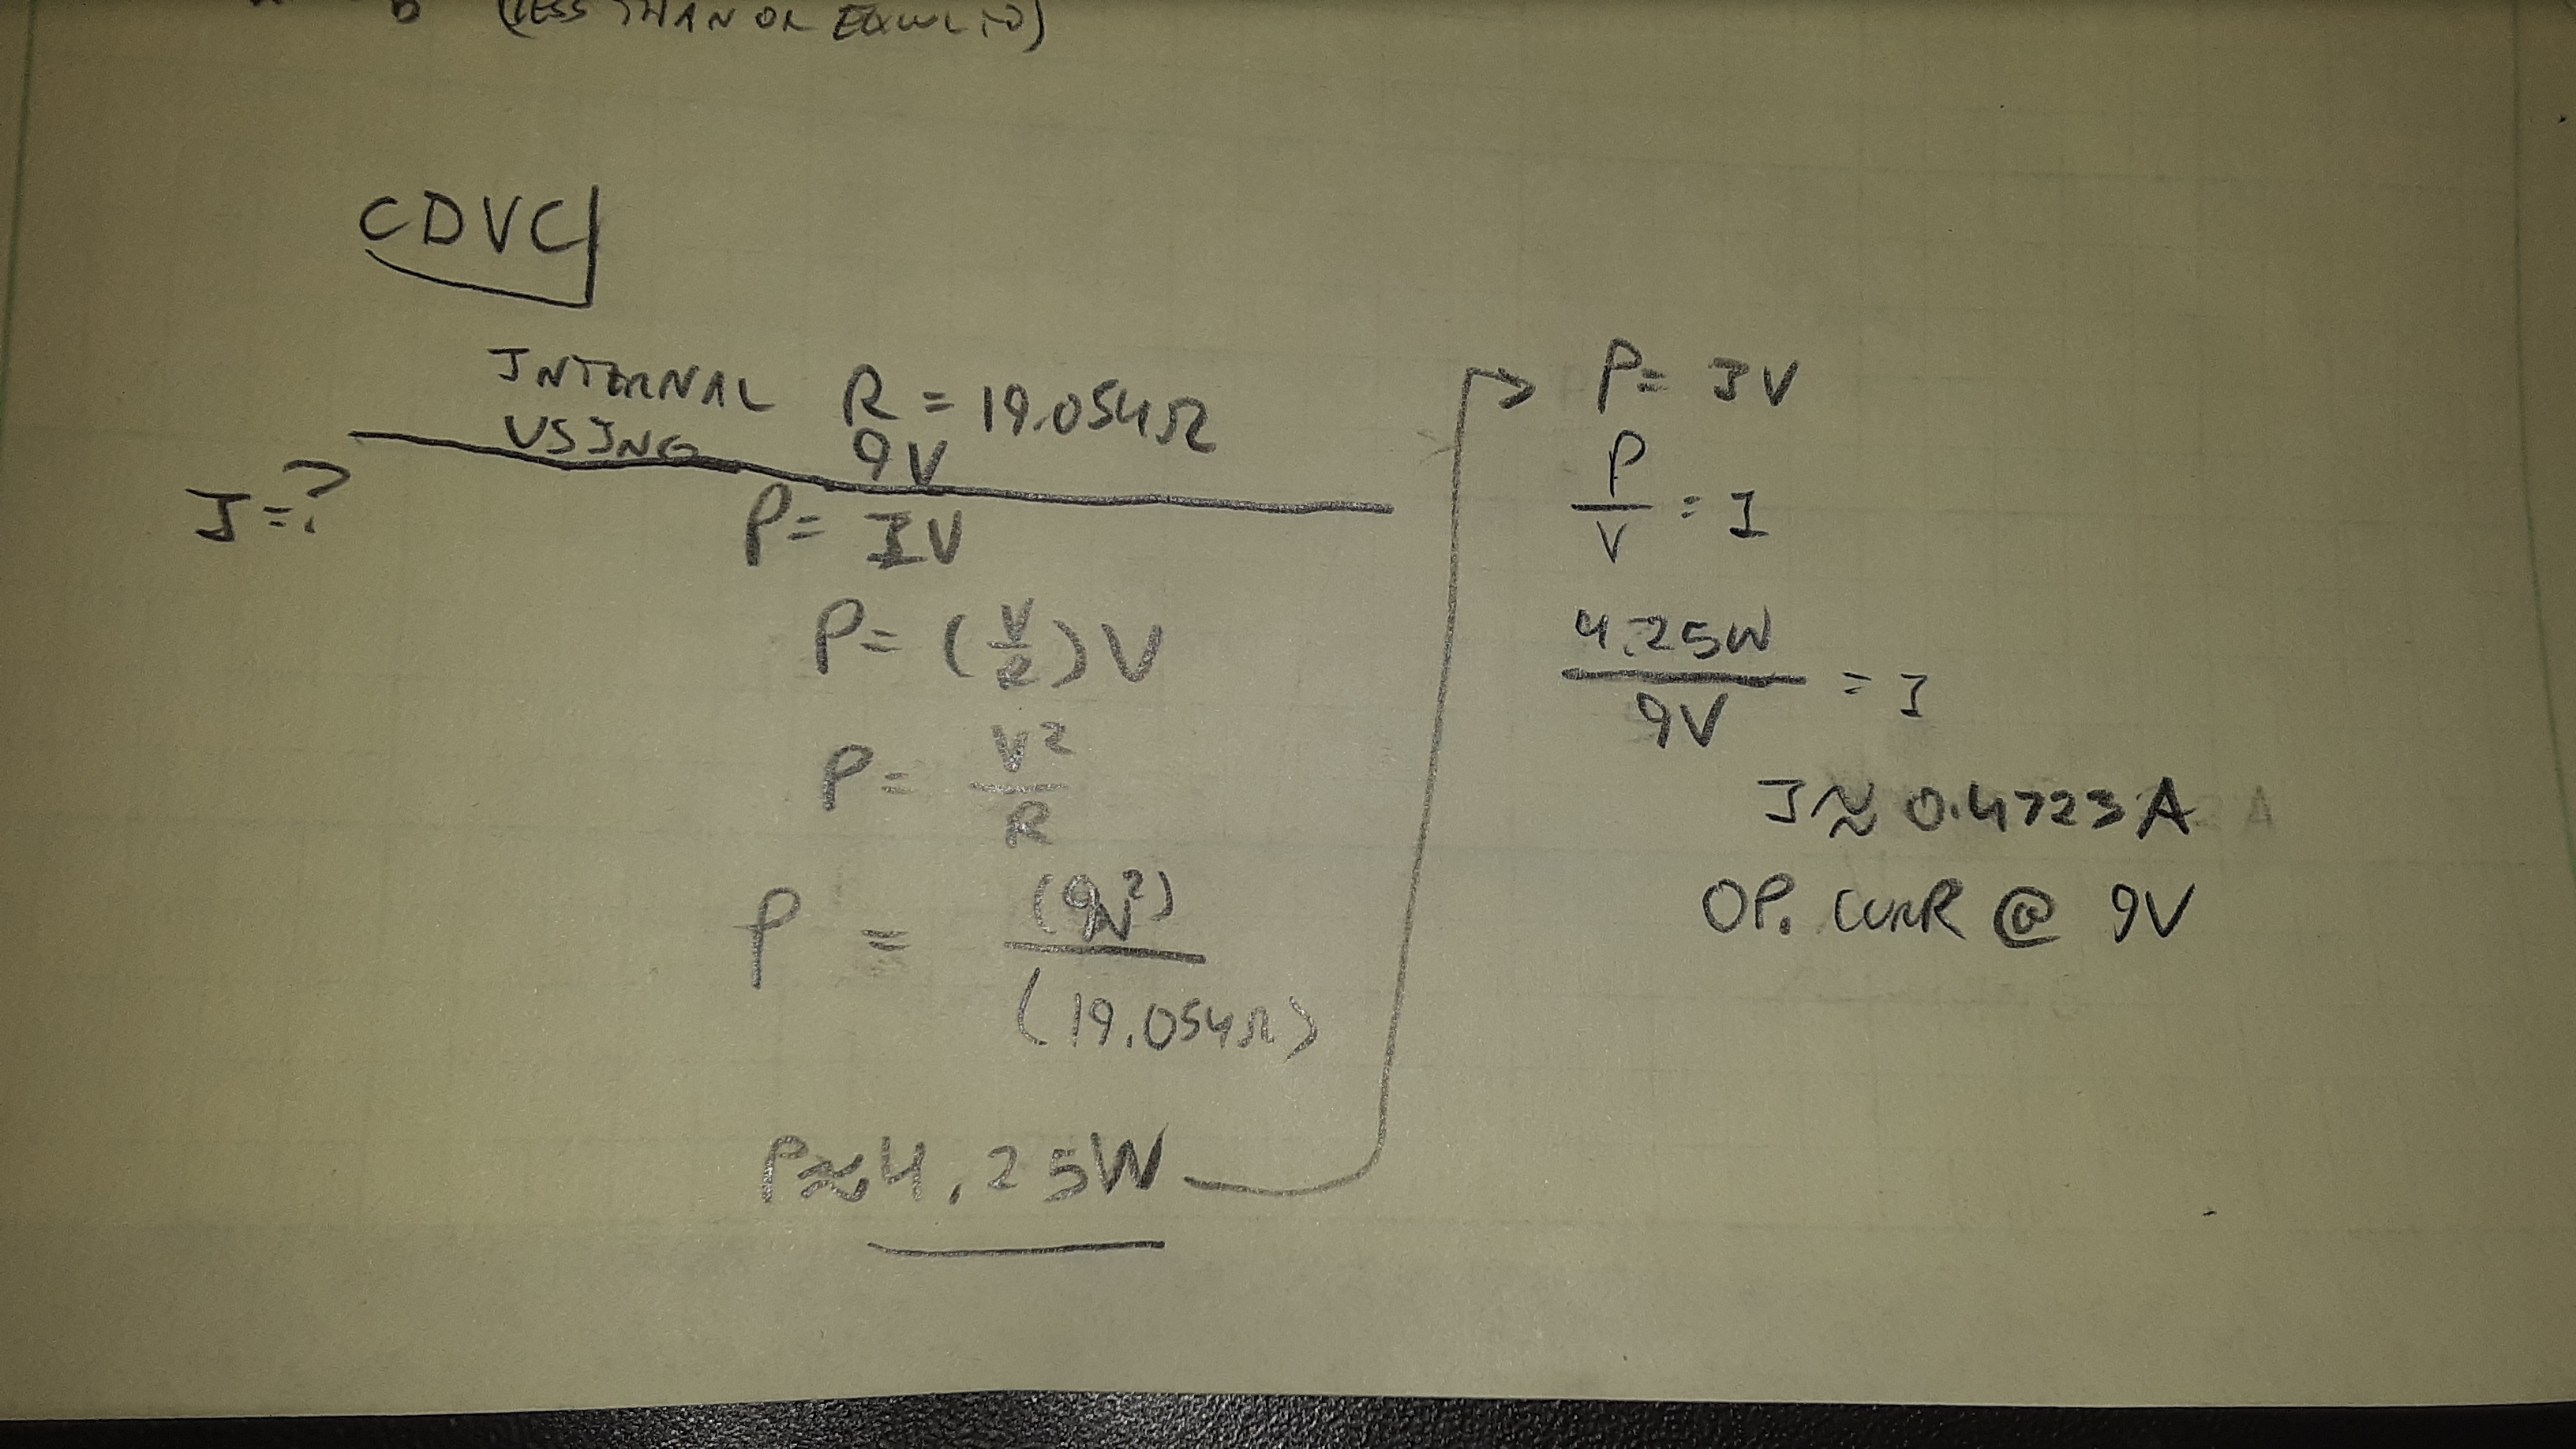 b (LESS THAN OR EQUAL TO)
CDVC
INTERNAL R = 19.054Ω
USING 9V
I=?
P= IV
P= (V/R)V
P= V²/R
P = (9V²)/(19.054Ω)
P≈4.25W
P= IV
P/V = I
4.25W/9V = I
I≈ 0.4723A
OP. CURR @ 9V